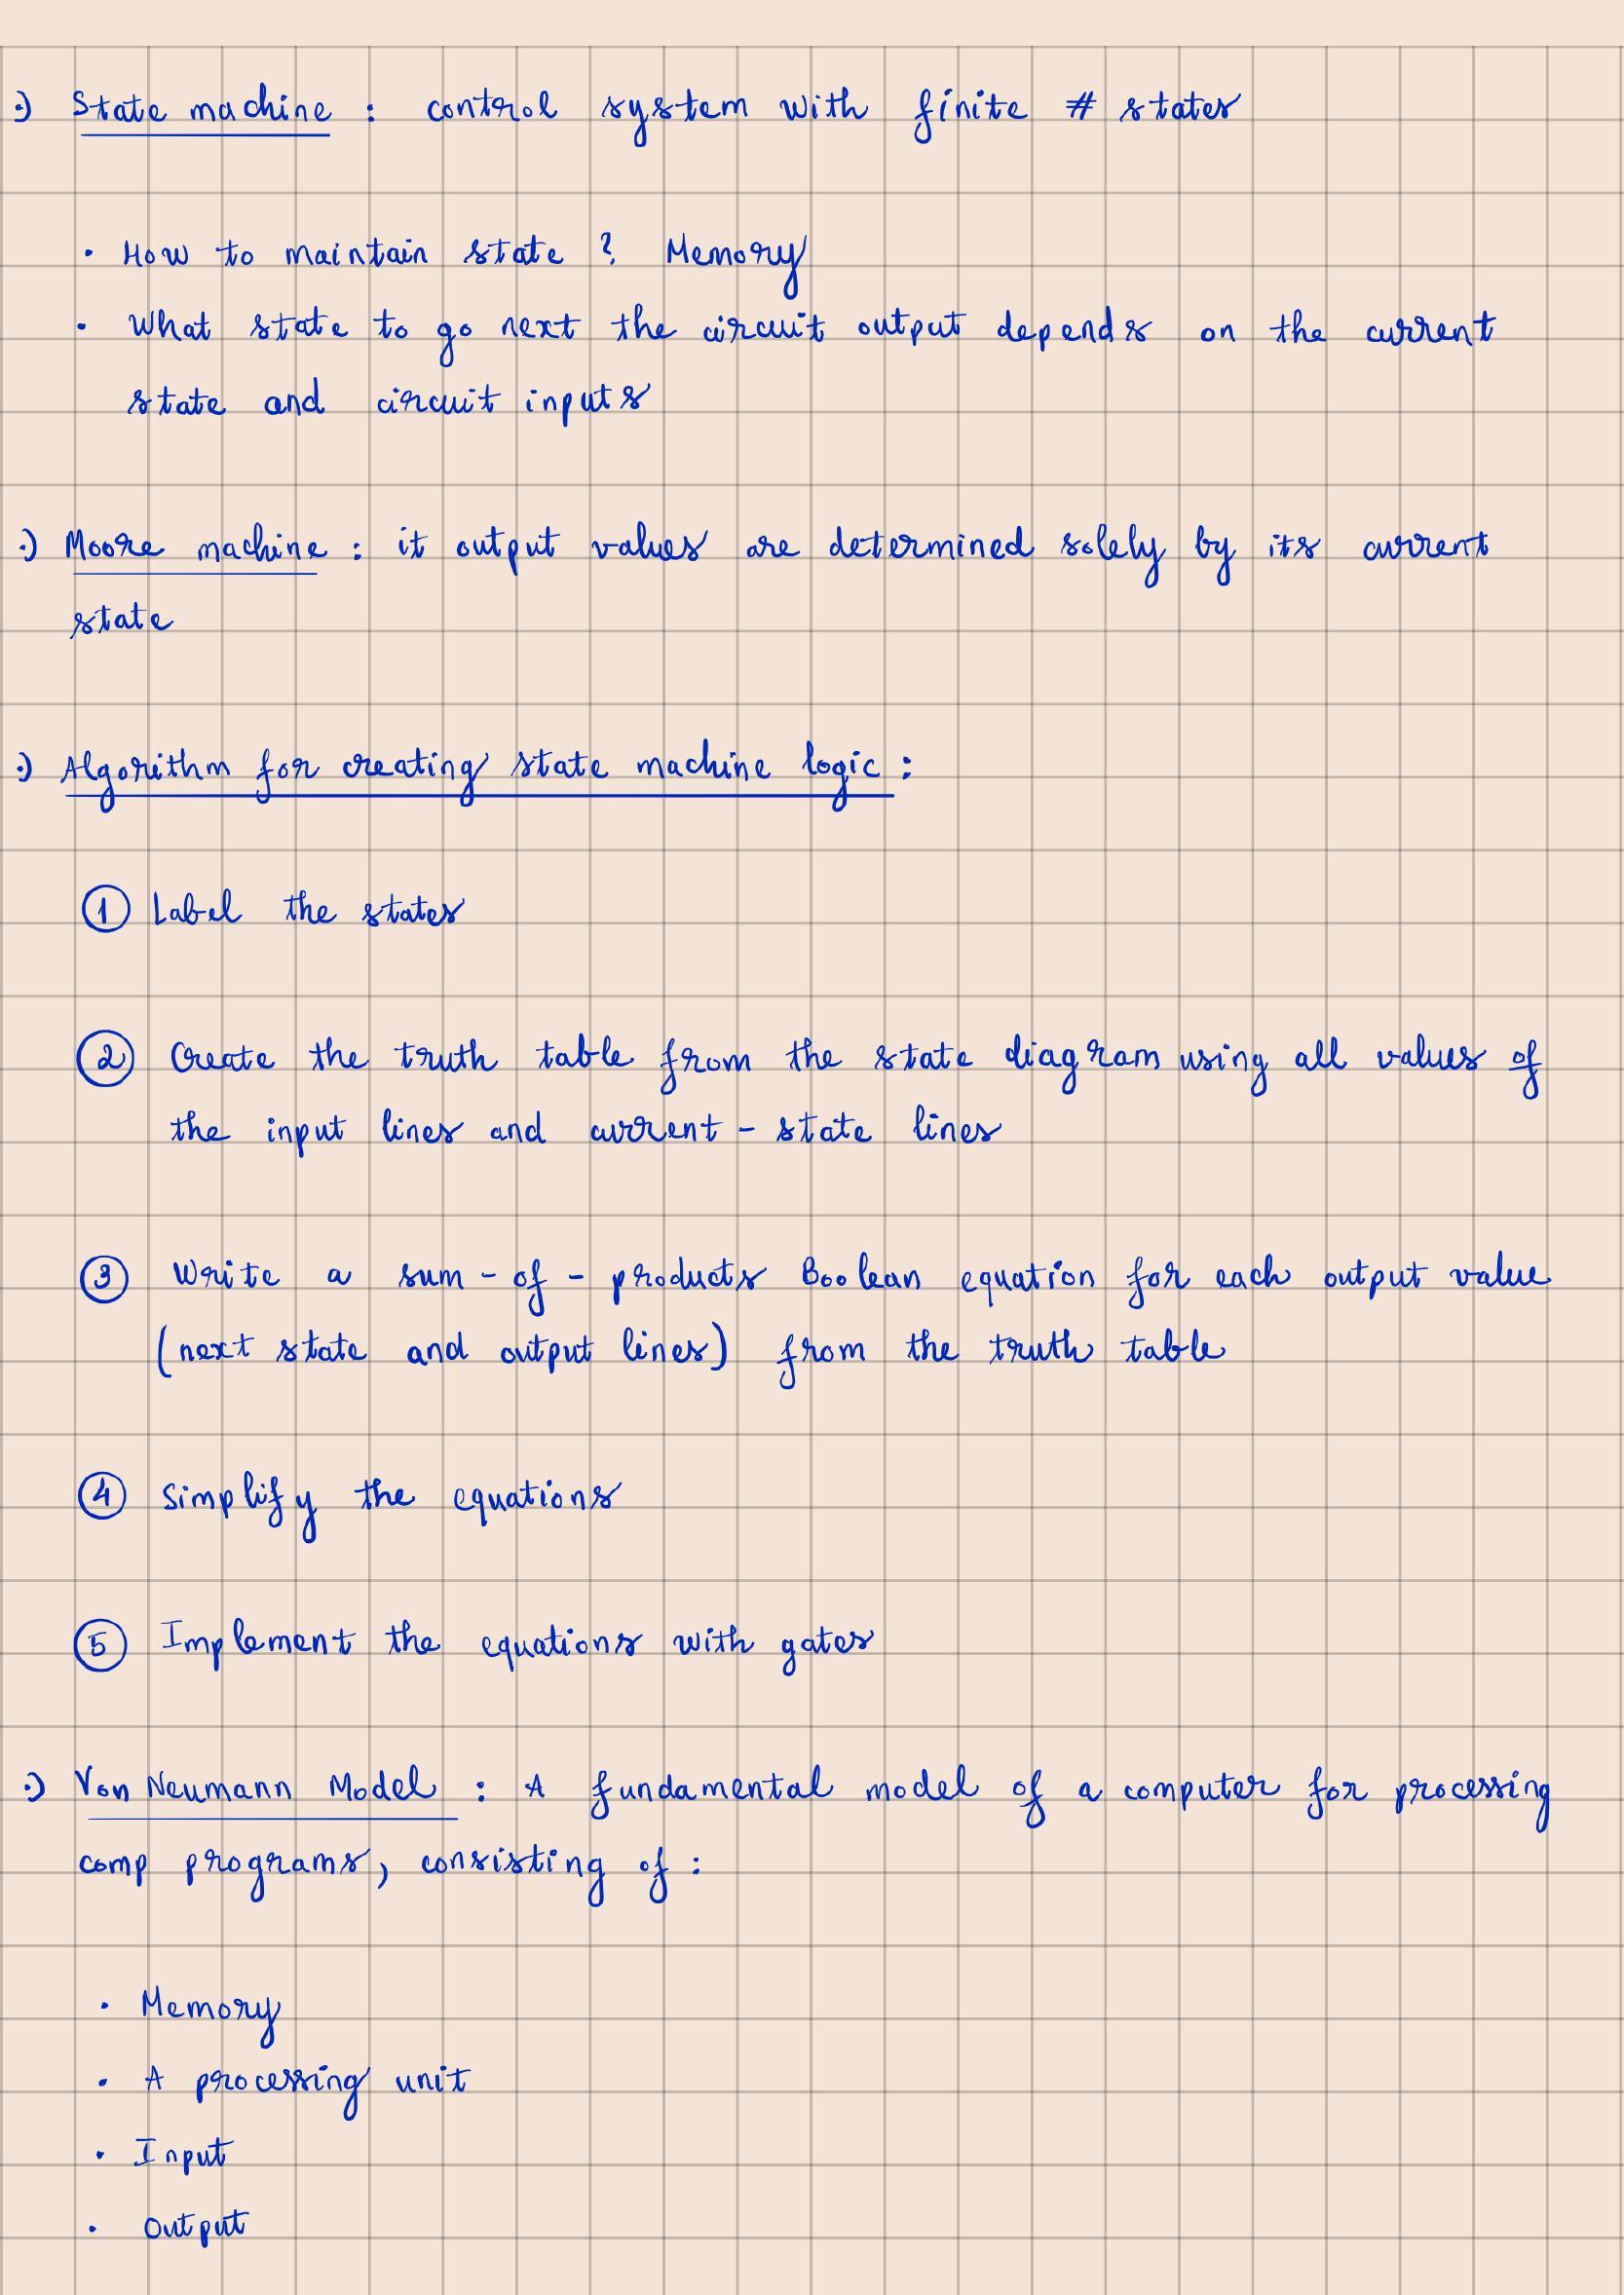 :) State machine : control system with finite # states
• How to maintain state ? Memory
• What state to go next the circuit output depends on the current
state and circuit inputs
:) Moore machine : it output values are determined solely by its current
state
:) Algorithm for creating state machine logic :
① Label the states
② Create the truth table from the state diagram using all values of
the input lines and current - state lines
③ Write a sum - of - products Boolean equation for each output value
(next state and output lines) from the truth table
④ Simplify the equations
⑤ Implement the equations with gates
:) Von Neumann Model : A fundamental model of a computer for processing
comp programs, consisting of :
• Memory
• A processing unit
• Input
• Output